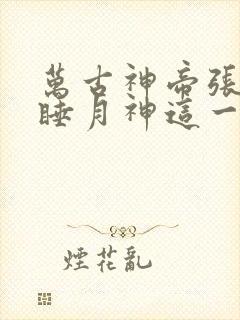 萬古神帝張
睡月神這一
煙花亂